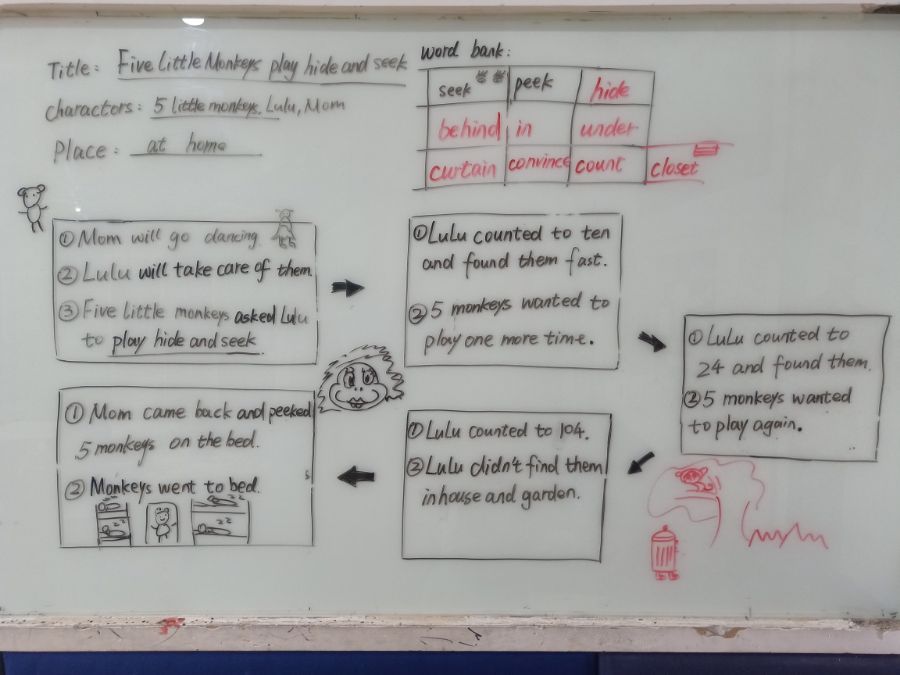 Title: Five Little Monkeys play hide and seek
charactors: 5 little monkeys, Lulu, Mom
Place: at home
word bank:
seek peek hide
behind in under
curtain convince count closet
① Mom will go dancing.
② Lulu will take care of them.
③ Five little monkeys asked Lulu
to play hide and seek.
① Lulu counted to ten
and found them fast.
② 5 monkeys wanted to
play one more time.
① Lulu counted to
24 and found them.
② 5 monkeys wanted
to play again.
① Lulu counted to 104.
② Lulu didn't find them
in house and garden.
① Mom came back and peeked
5 monkeys on the bed.
② Monkeys went to bed.
zz
zz
zz
zz